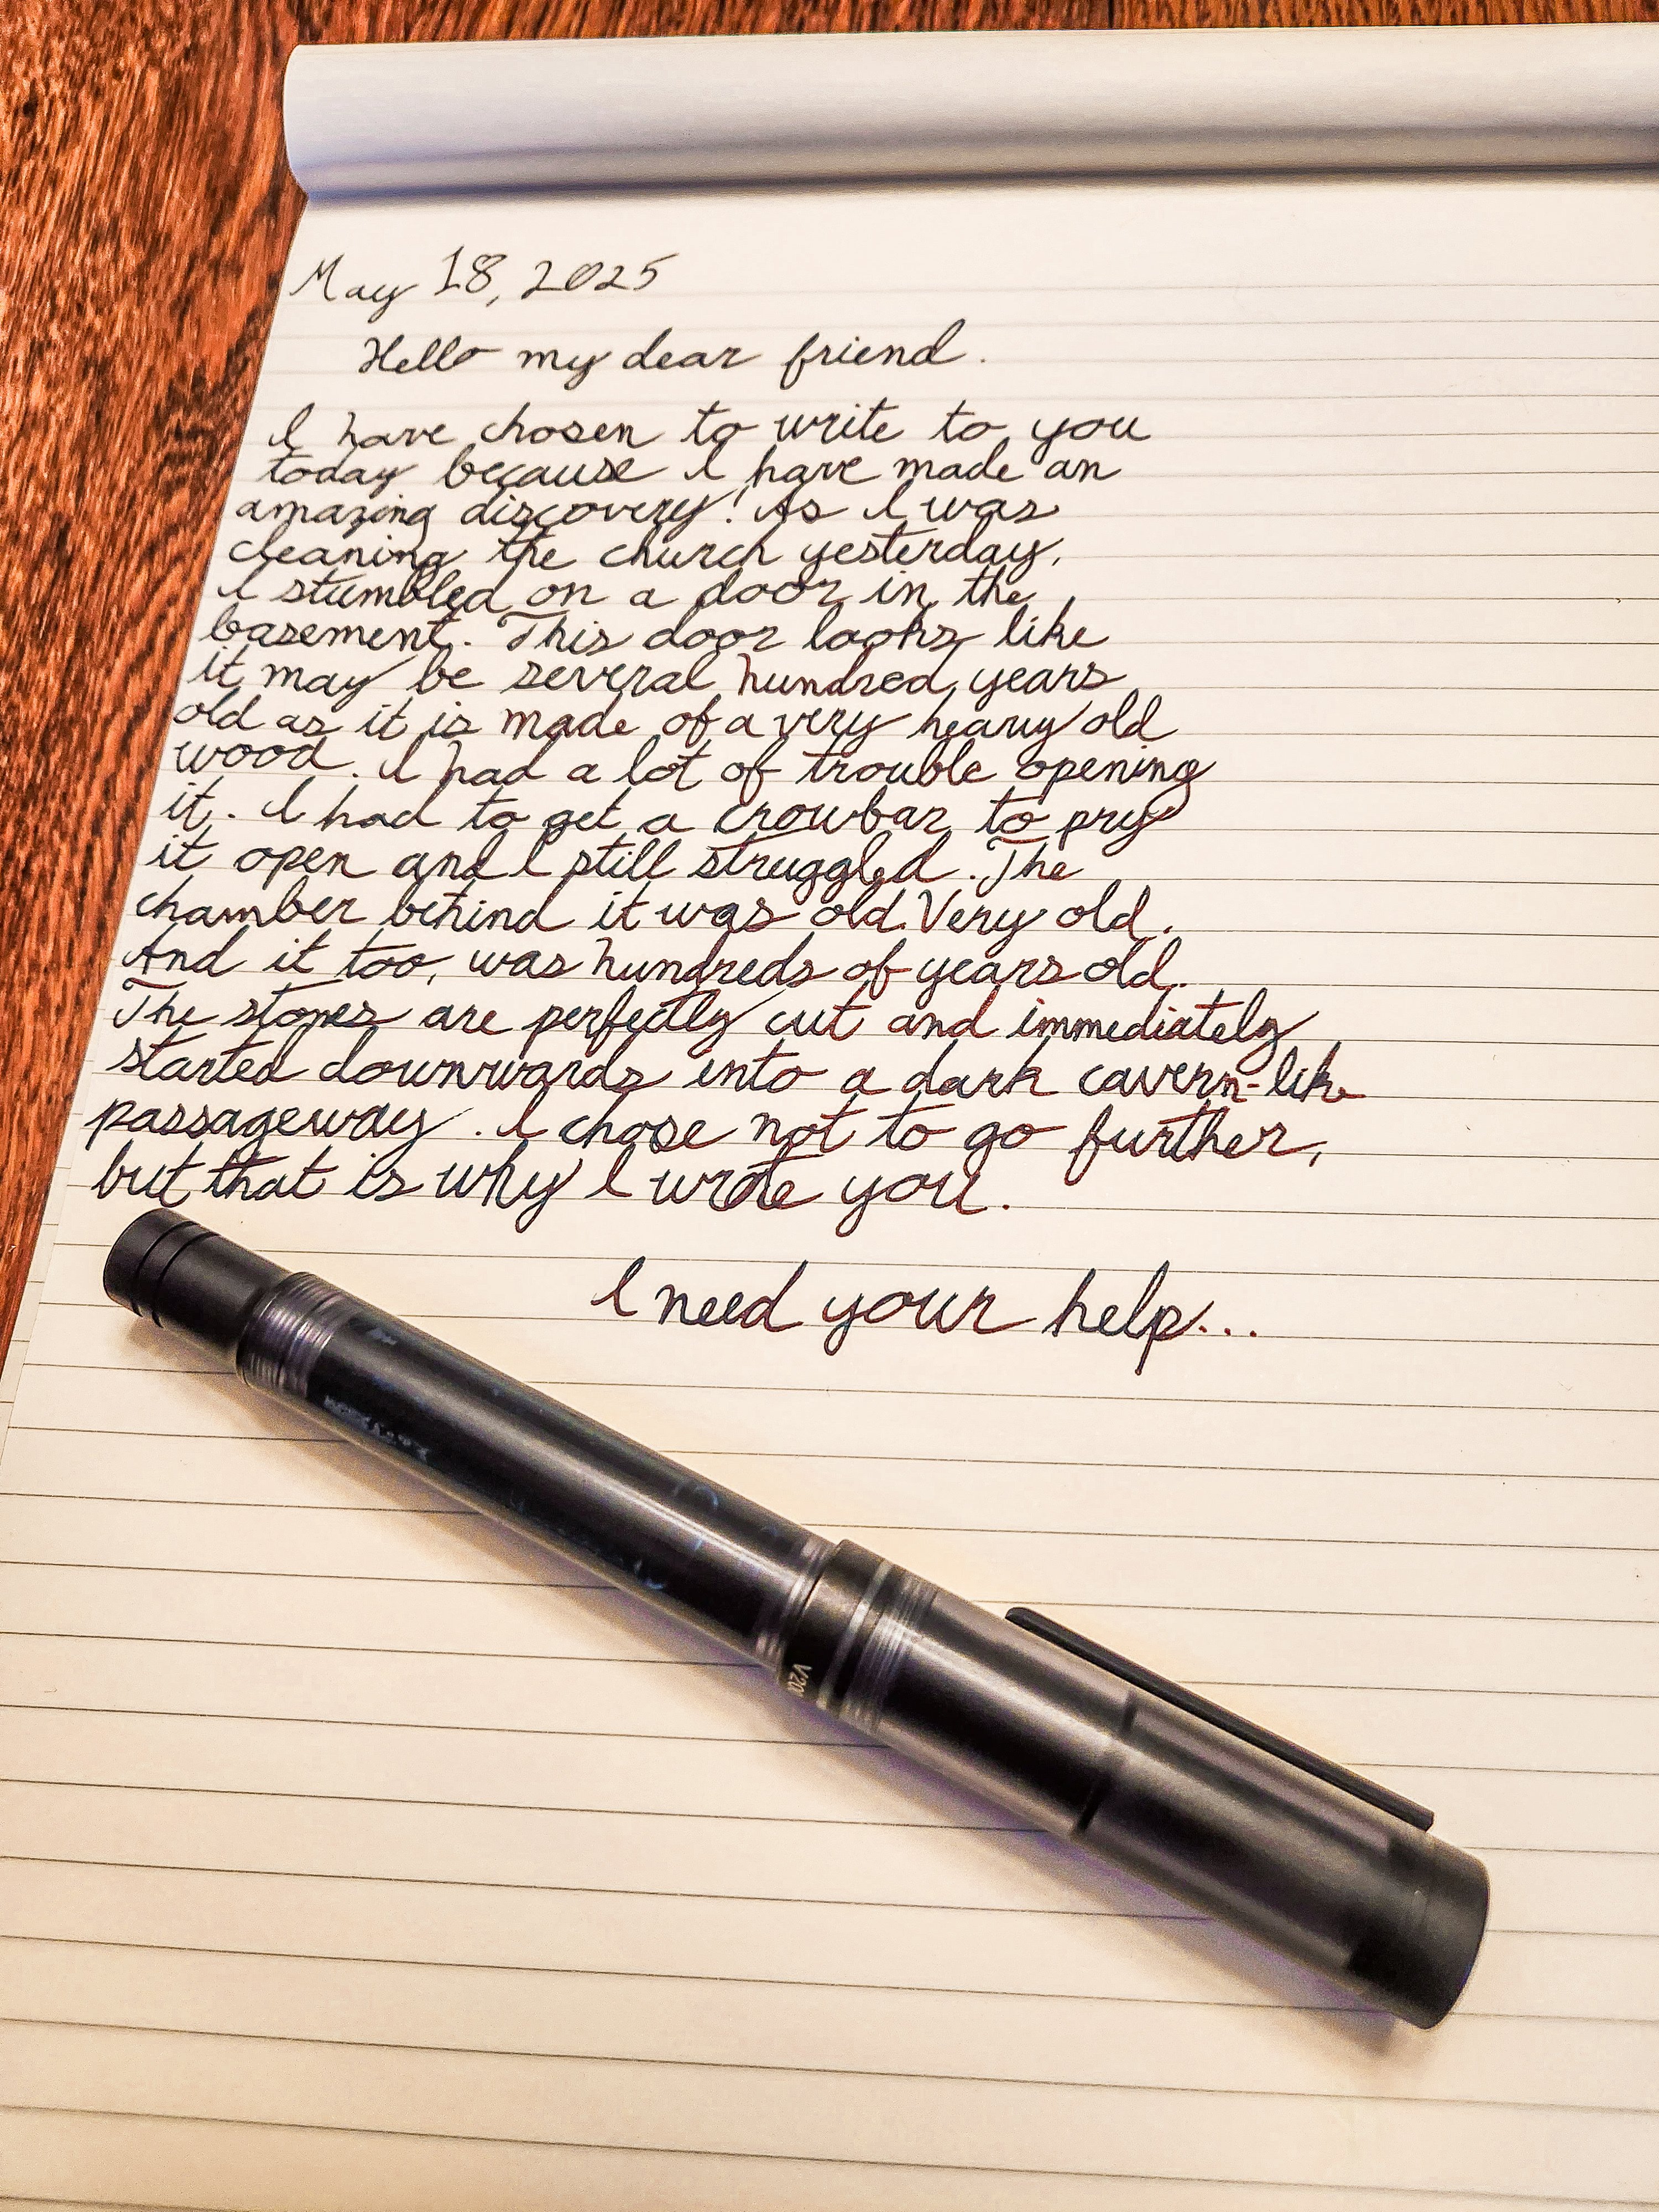 May 18, 2025
Hello my dear friend.
I have chosen to write to you
today because I have made an
amazing discovery! As I was
cleaning the church yesterday,
I stumbled on a door in the
basement. This door looks like
it may be several hundred years
old as it is made of a very heavy old
wood. I had a lot of trouble opening
it. I had to get a crowbar to pry
it open and I still struggled. The
chamber behind it was old. Very old.
And it too, was hundreds of years old.
The stones are perfectly cut and immediately
started downwards into a dark cavern-like
passageway. I chose not to go further,
but that is why I wrote you.
I need your help...